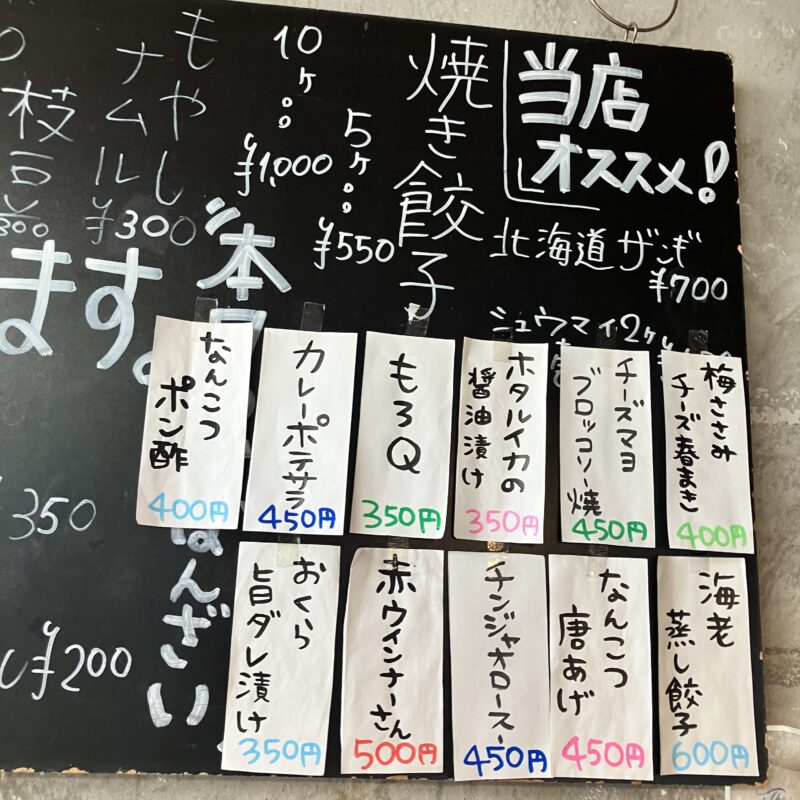 当店
オススメ!
北海道ザンギ
¥700
シュウマイ2ケ
焼き餃子
5ケ
¥550
10ケ
¥1,000
もやし
ナムル
¥300
枝豆
300
ます。
350
¥200
梅ささみ
チーズ春まき
400円
チーズマヨ
ブロッコリー焼
450円
ホタルイカの
醤油漬け
350円
もろQ
350円
カレーポテサラ
450円
なんこつ
ポン酢
400円
海老
蒸し餃子
600円
なんこつ
唐あげ
450円
チンジャオロース
450円
赤ウィンナーさん
500円
おくら
旨ダレ漬け
350円